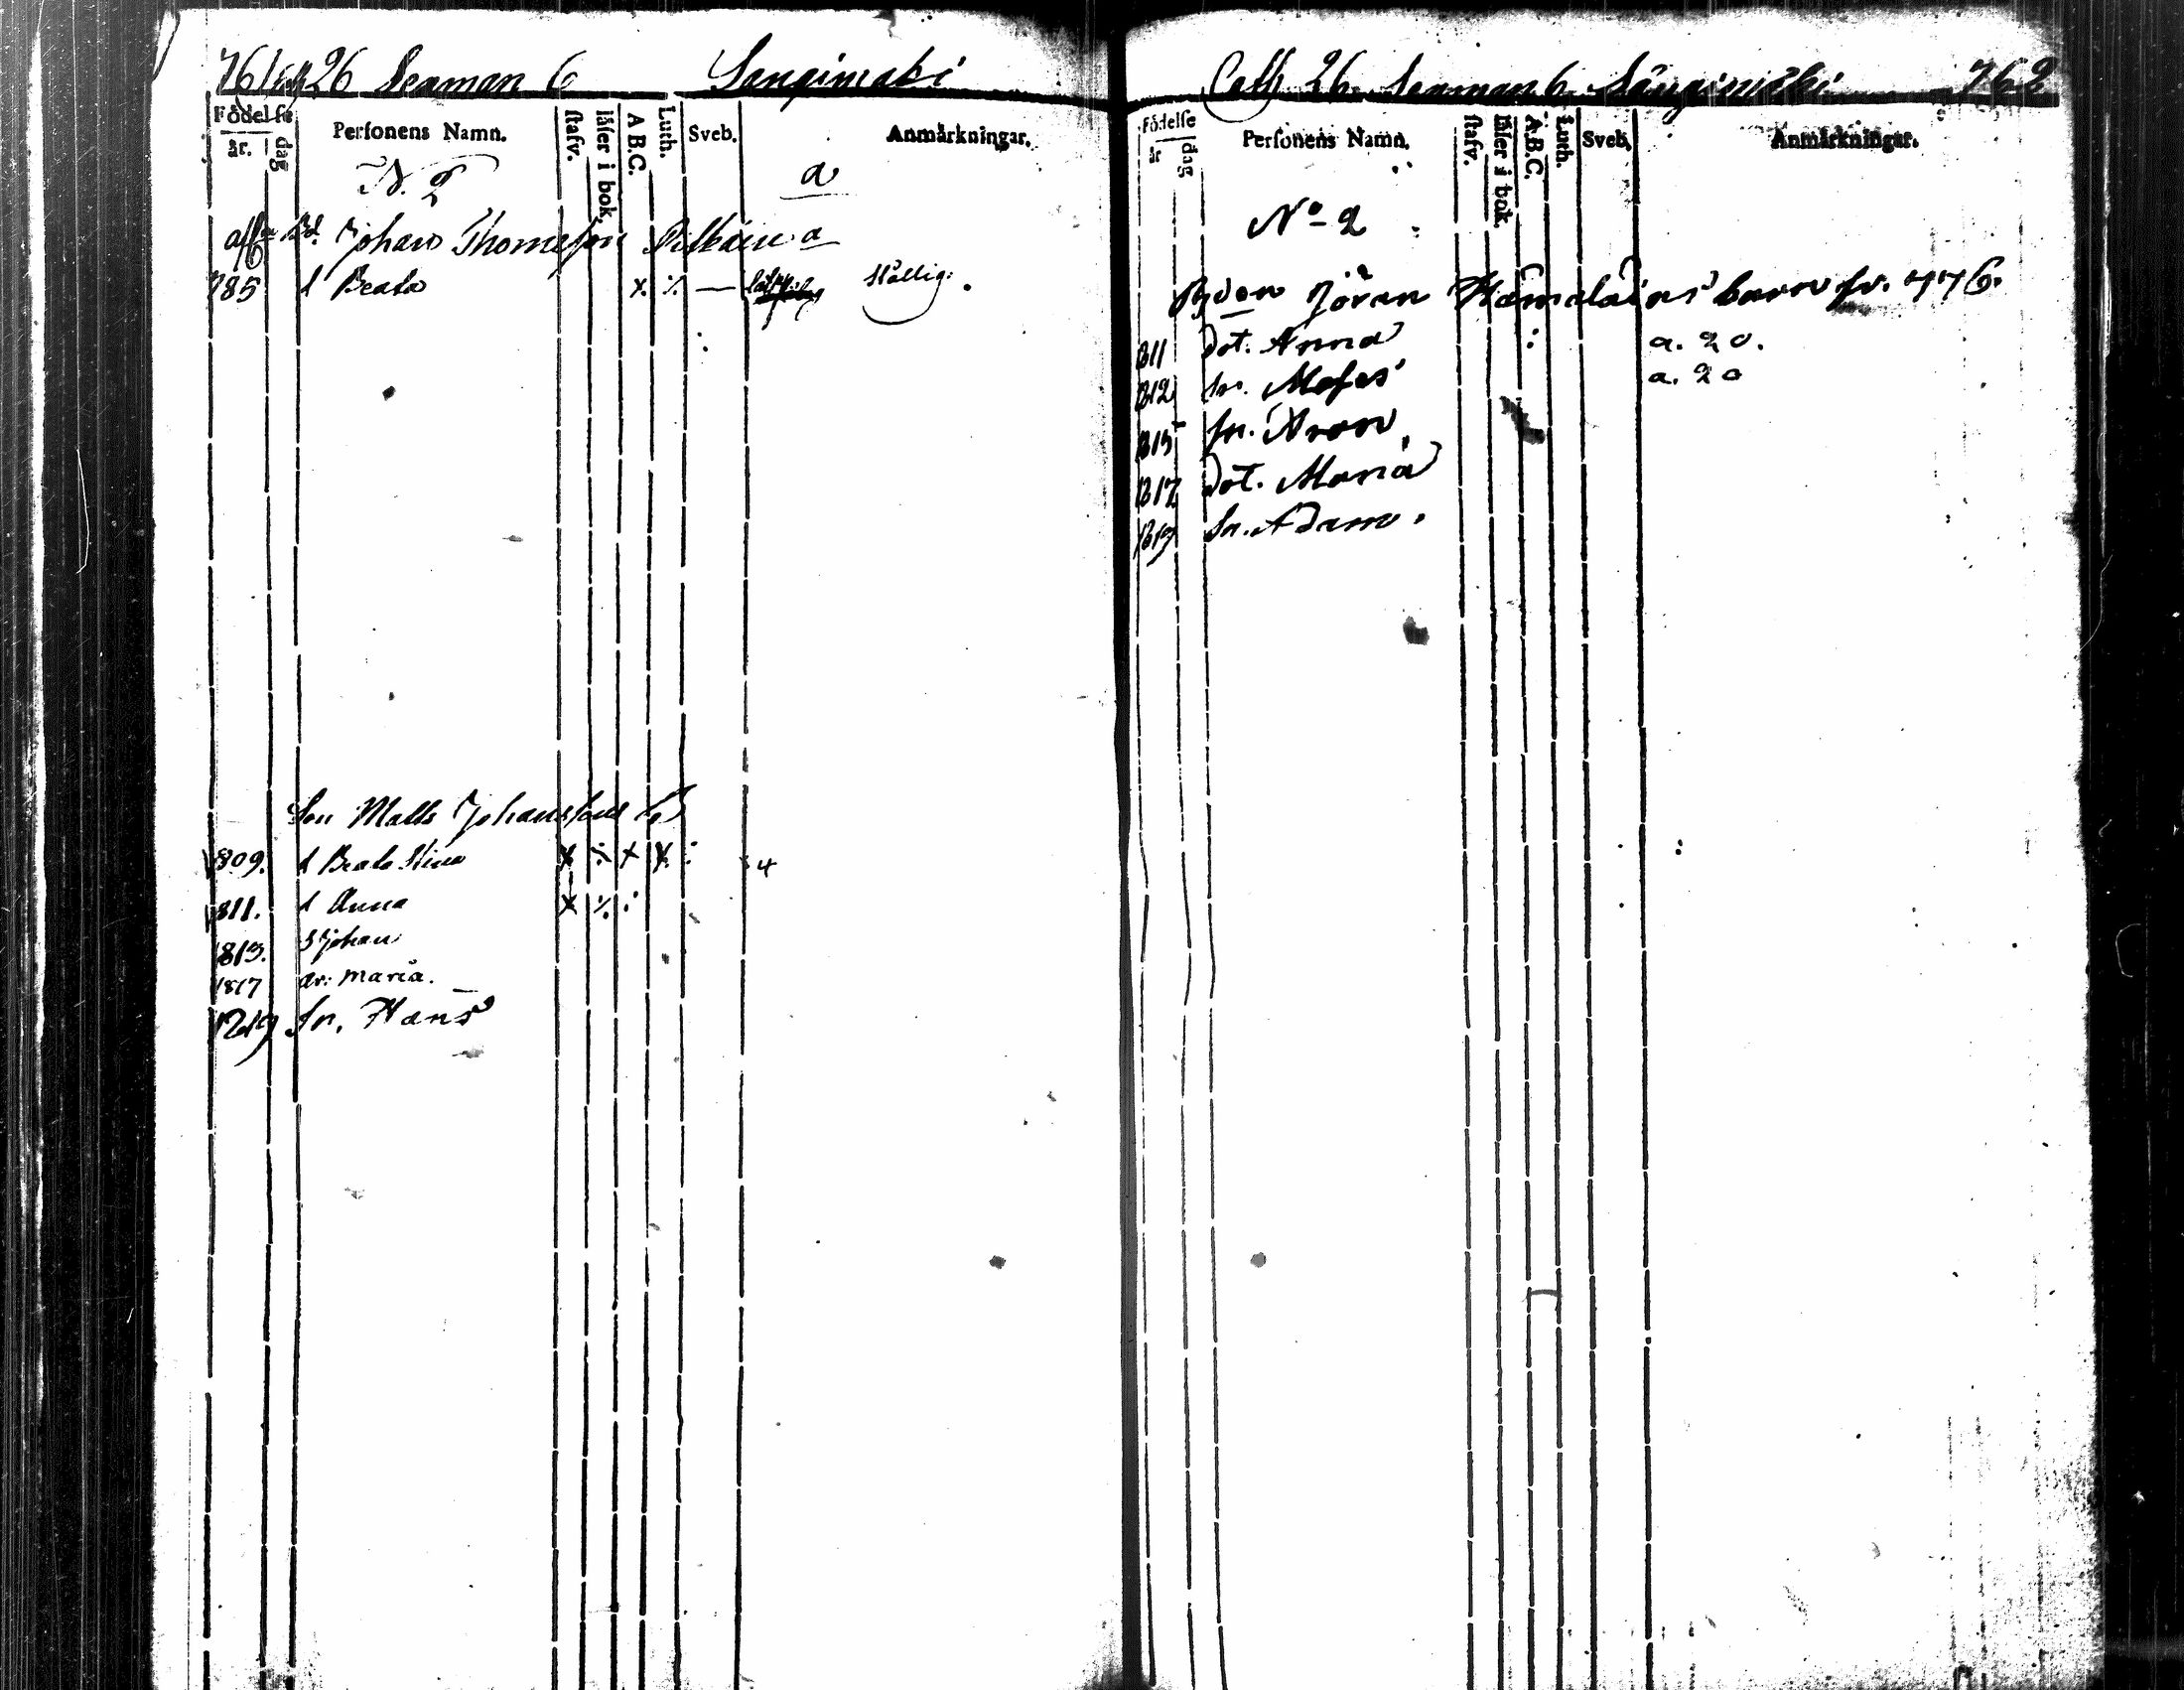 761 Cath 26 Lenman 6 Sangimäki
Födelse
år. dag
Personens Namn.
stafv.
läser i bok.
A B C.
Luth.
Sveb.
Anmärkningar.
N. 2
a
Johan Thomasson Pitkäine a
785 d Beata x ·/. — Ställig.
Son Matts Johanssons
1809. d Beata Stina x ·/. x x : 4
1811. d Anna x ·/.
1813. S Johan
1817 dr: Maria.
1819 Sn. Hans
Cath 26. Lenman 6. Sångimäki 762
Födelse
år dag
Personens Namn.
stafv.
läser i bok.
A.B.C.
Luth.
Sveb.
Anmärkningar.
No 2
Bden Jöran Hämäläins barn fr. 776.
811 Dot. Anna a. 20.
812 Sn. Moses a. 20
815 Sn. Aron
817 Dot. Maria
819 Sn. Adam.